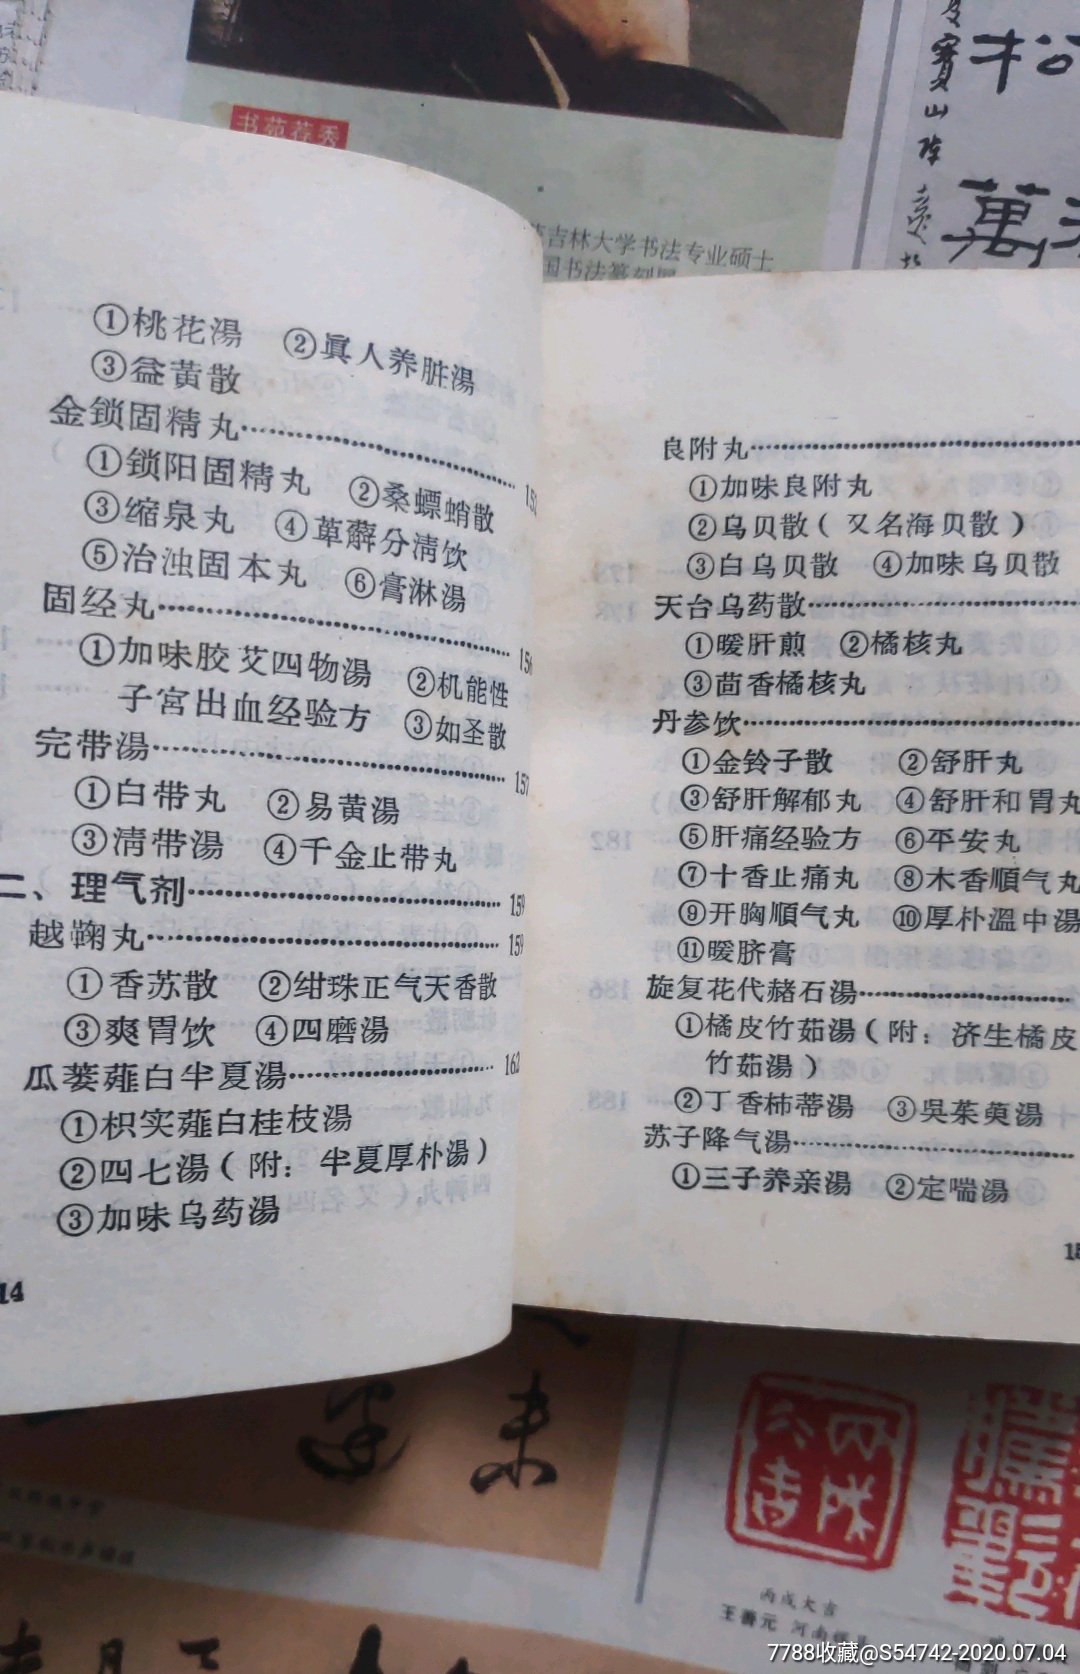 书苑荐秀
吉林大学书法专业硕士
国书法篆刻网
①桃花湯 ②眞人养脏湯
③益黄散
金锁固精丸
①锁阳固精丸 ②桑螵蛸散
③缩泉丸 ④萆薢分清饮
⑤治浊固本丸 ⑥膏淋湯
固经丸 156
①加味胶艾四物湯 ②机能性
子宫出血经验方 ③如圣散
完带湯 157
①白带丸 ②易黄湯
③清带湯 ④千金止带丸
二、理气剂 159
越鞠丸 159
①香苏散 ②绀珠正气天香散
③爽胃饮 ④四磨湯
瓜蒌薤白半夏湯 162
①枳实薤白桂枝湯
②四七湯（附：半夏厚朴湯）
③加味乌药湯
14
良附丸
①加味良附丸
②乌贝散（又名海贝散）
③白乌贝散 ④加味乌贝散
天台乌药散
①暖肝煎 ②橘核丸
③茴香橘核丸
丹参饮
①金铃子散 ②舒肝丸
③舒肝解郁丸 ④舒肝和胃丸
⑤肝痛经验方 ⑥平安丸
⑦十香止痛丸 ⑧木香順气丸
⑨开胸順气丸 ⑩厚朴溫中湯
⑪暖脐膏
旋复花代赭石湯
①橘皮竹茹湯（附：济生橘皮
竹茹湯）
②丁香柿蒂湯 ③吳茱萸湯
苏子降气湯
①三子养亲湯 ②定喘湯
丙戌大吉
王善元 河南
7788收藏@S54742-2020.07.04